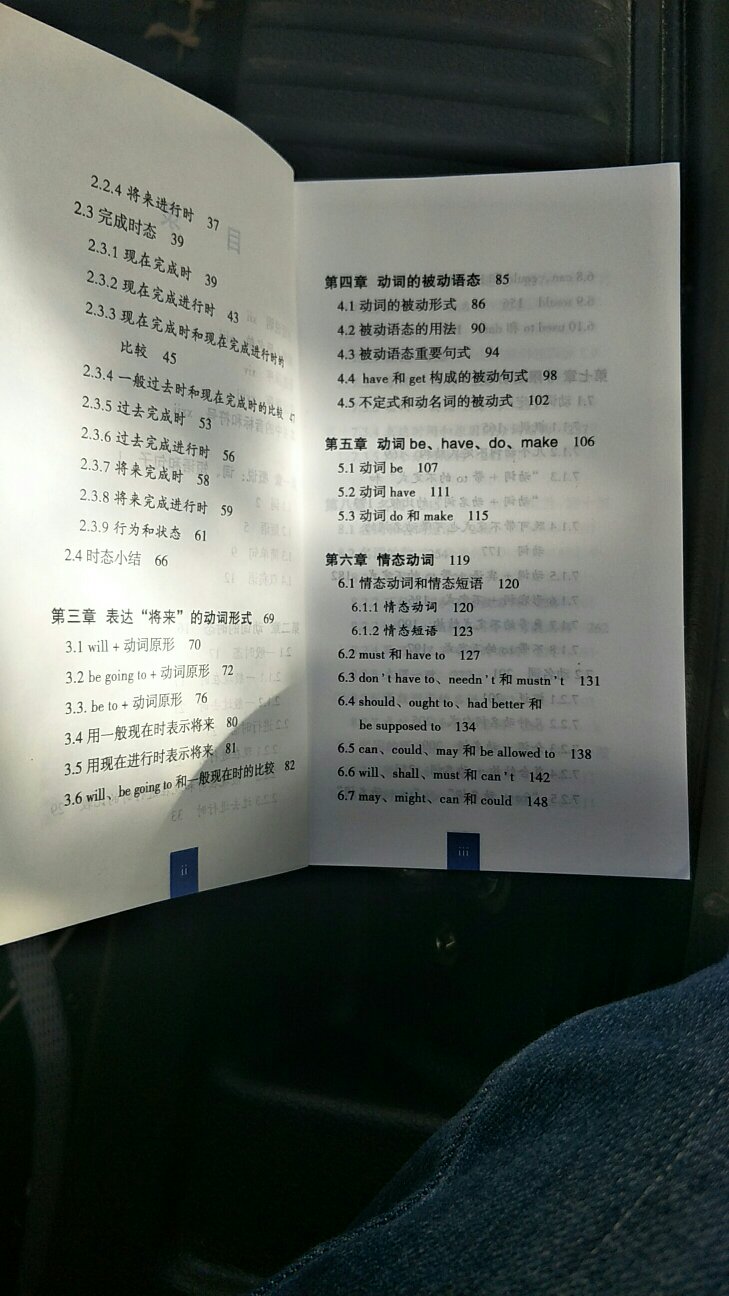 2.2.4 将来进行时 37
2.3 完成时态 39
2.3.1 现在完成时 39
2.3.2 现在完成进行时 43
2.3.3 现在完成时和现在完成进行时的
比较 45
2.3.4 一般过去时和现在完成时的比较 47
2.3.5 过去完成时 53
2.3.6 过去完成进行时 56
2.3.7 将来完成时 58
2.3.8 将来完成进行时 59
2.3.9 行为和状态 61
2.4 时态小结 66
第三章 表达“将来”的动词形式 69
3.1 will + 动词原形 70
3.2 be going to + 动词原形 72
3.3. be to + 动词原形 76
3.4 用一般现在时表示将来 80
3.5 用现在进行时表示将来 81
3.6 will、be going to 和一般现在时的比较 82
ii
第四章 动词的被动语态 85
4.1 动词的被动形式 86
4.2 被动语态的用法 90
4.3 被动语态重要句式 94
4.4 have 和 get 构成的被动句式 98
4.5 不定式和动名词的被动式 102
第五章 动词 be、have、do、make 106
5.1 动词 be 107
5.2 动词 have 111
5.3 动词 do 和 make 115
第六章 情态动词 119
6.1 情态动词和情态短语 120
6.1.1 情态动词 120
6.1.2 情态短语 123
6.2 must 和 have to 127
6.3 don't have to、needn't 和 mustn't 131
6.4 should、ought to、had better 和
be supposed to 134
6.5 can、could、may 和 be allowed to 138
6.6 will、shall、must 和 can't 142
6.7 may、might、can 和 could 148
iii